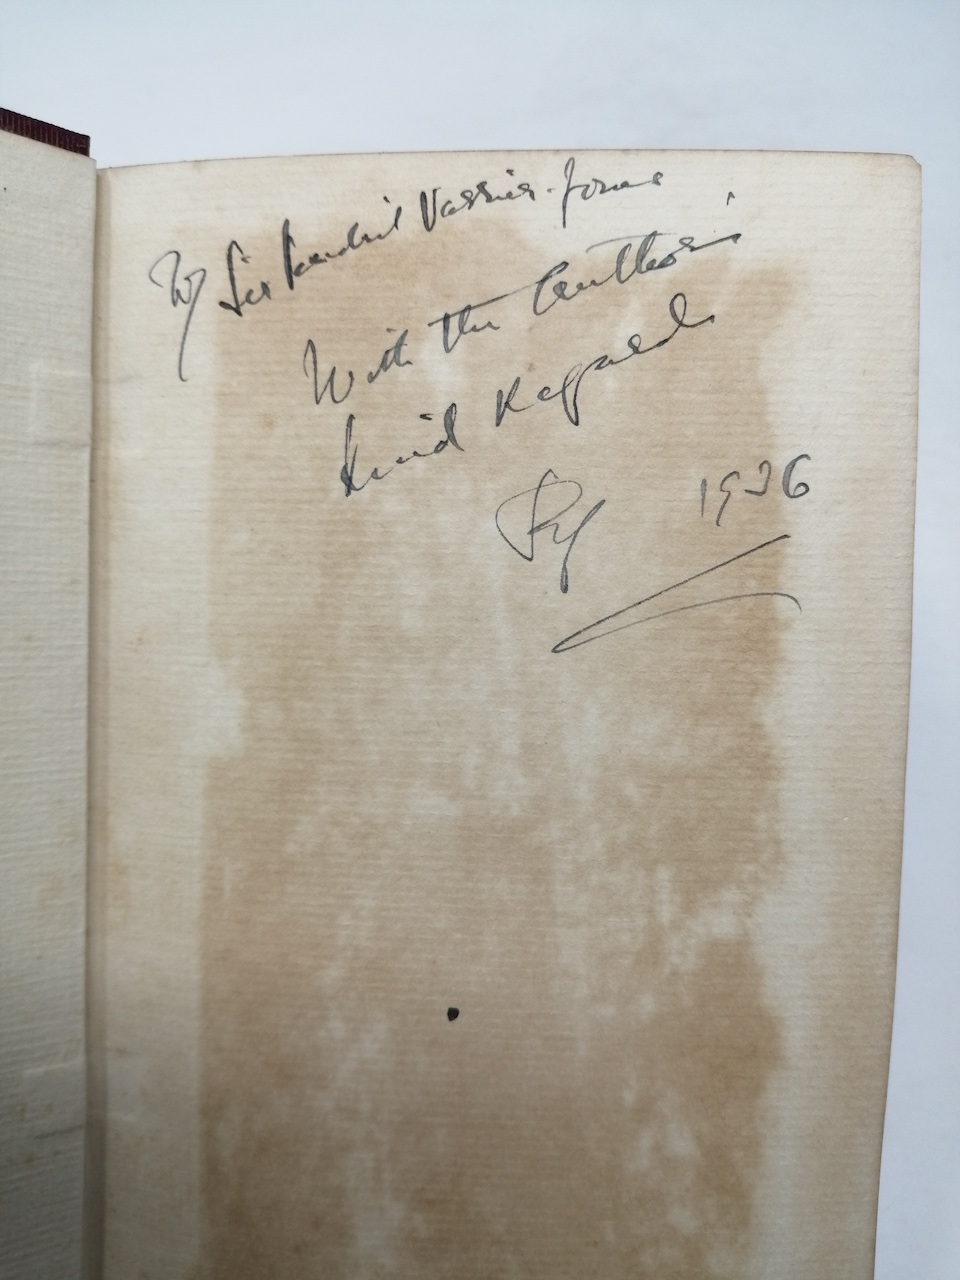 To Sir Pendril Varrier-Jones
With the Author's
Kind Regards
1936